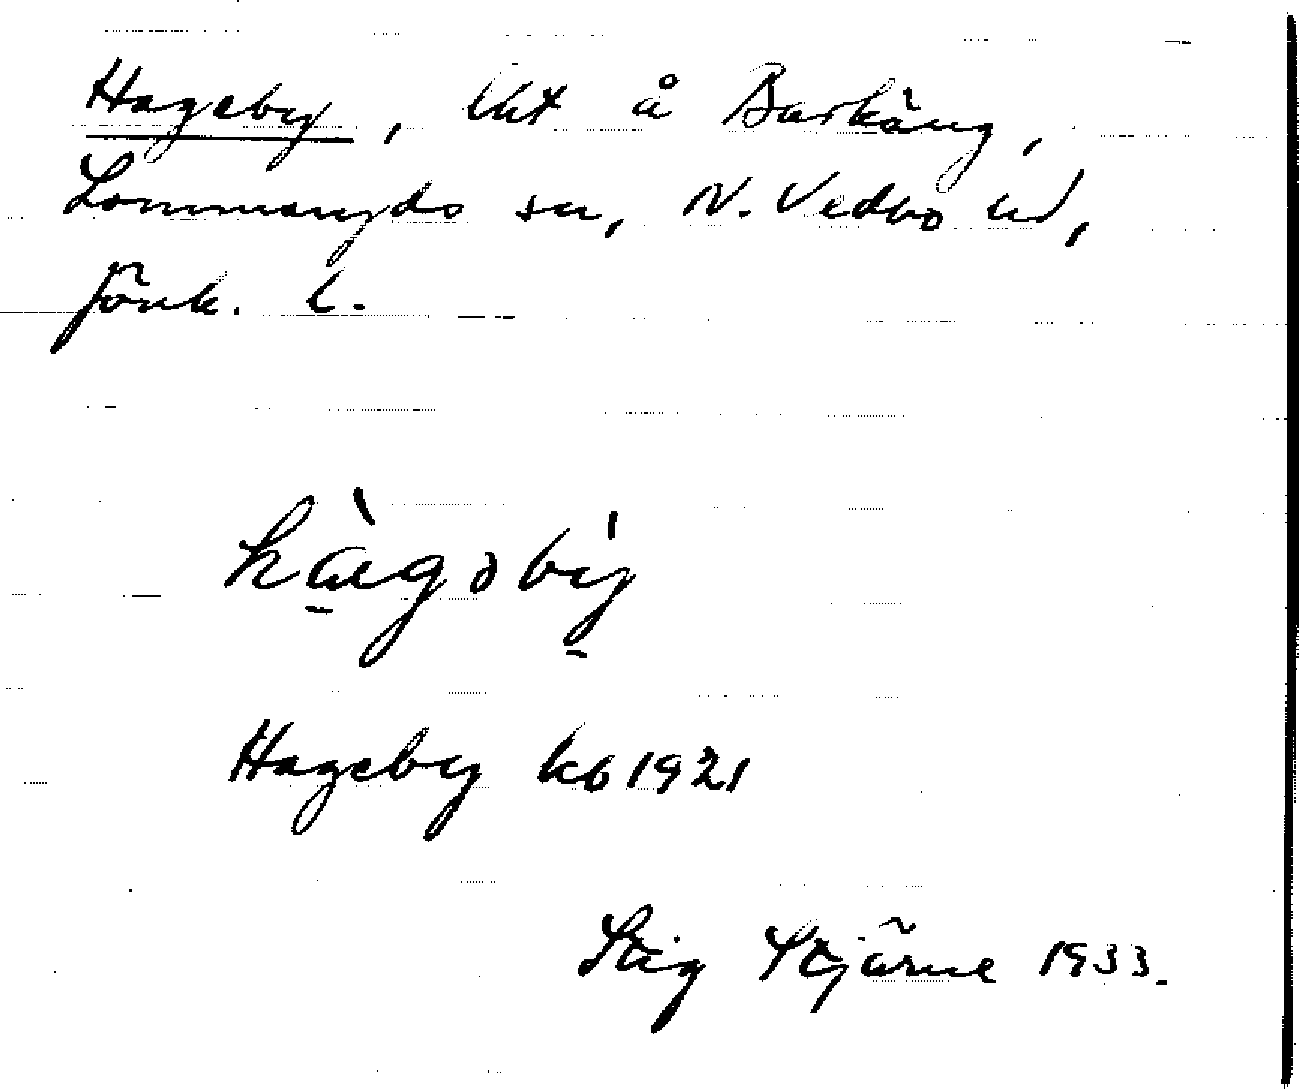 Hageby, lht å Barkäng,
Lommaryds sn, N. Vedbo hd,
Jönk. l.
hàgəbý
Hageby kb 1921
Stig Stjärne 1933.